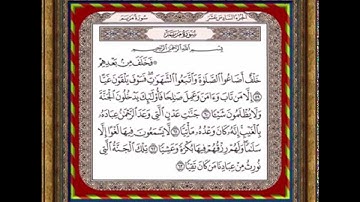 الجزء السادس عشر
سورة مريم
سورة مريم
بسم الله الرحمن الرحيم
فَخَلَفَ مِنۢ بَعْدِهِمْ
خَلْفٌ أَضَاعُوا۟ ٱلصَّلَوٰةَ وَٱتَّبَعُوا۟ ٱلشَّهَوَٰتِ ۖ فَسَوْفَ يَلْقَوْنَ غَيًّا
﴿٥٩﴾ إِلَّا مَن تَابَ وَءَامَنَ وَعَمِلَ صَٰلِحًا فَأُو۟لَٰٓئِكَ يَدْخُلُونَ ٱلْجَنَّةَ
وَلَا يُظْلَمُونَ شَيْـًٔا ﴿٦٠﴾ جَنَّٰتِ عَدْنٍ ٱلَّتِى وَعَدَ ٱلرَّحْمَٰنُ عِبَادَهُۥ
بِٱلْغَيْبِ ۚ إِنَّهُۥ كَانَ وَعْدُهُۥ مَأْتِيًّا ﴿٦١﴾ لَّا يَسْمَعُونَ فِيهَا لَغْوًا إِلَّا
سَلَٰمًا ۖ وَلَهُمْ رِزْقُهُمْ فِيهَا بُكْرَةً وَعَشِيًّا ﴿٦٢﴾ تِلْكَ ٱلْجَنَّةُ ٱلَّتِى
نُورِثُ مِنْ عِبَادِنَا مَن كَانَ تَقِيًّا ﴿٦٣﴾